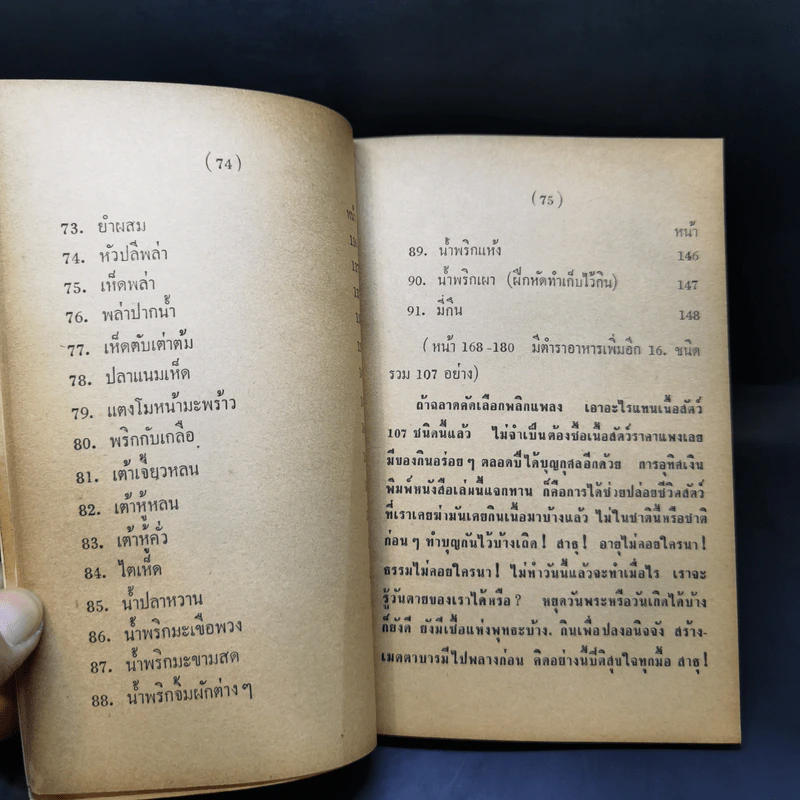 (74)
73. ยำผสม
74. หัวปลีพล่า
75. เห็ดพล่า
76. พล่าปากน้ำ
77. เห็ดตับเต่าต้ม
78. ปลาแนมเห็ด
79. แตงโมหน้ามะพร้าว
80. พริกกับเกลือ
81. เต้าเจี้ยวหลน
82. เต้าหู้หลน
83. เต้าหู้คั่ว
84. ไตเห็ด
85. น้ำปลาหวาน
86. น้ำพริกมะเขือพวง
87. น้ำพริกมะขามสด
88. น้ำพริกจิ้มผักต่างๆ
(75)
หน้า
89. น้ำพริกแห้ง 146
90. น้ำพริกเผา (ฝึกหัดทำเก็บไว้กิน) 147
91. มี่กึน 148
(หน้า 168-180 มีตำราอาหารเพิ่มอีก 16. ชนิด
รวม 107 อย่าง)
ถ้าฉลาดคัดเลือกพลิกแพลง เอาอะไรแทนเนื้อสัตว์
107 ชนิดนี้แล้ว ไม่จำเป็นต้องซื้อเนื้อสัตว์ราคาแพงเลย
มีของกินอร่อยๆ ตลอดปีได้บุญกุศลอีกด้วย การอุทิศเงิน
พิมพ์หนังสือเล่มนี้แจกทาน ก็คือการได้ช่วยปล่อยชีวิตสัตว์
ที่เราเคยฆ่ามันเคยกินเนื้อมาบ้างแล้ว ไม่ในชาตินี้หรือชาติ
ก่อนๆ ทำบุญกันไว้บ้างเถิด! สาธุ! อายุไม่คอยใครนา!
ธรรมไม่คอยใครนา! ไม่ทำวันนี้แล้วจะทำเมื่อไร เราจะ
รู้วันตายของเราได้หรือ? หยุดวันพระหรือวันเกิดได้บ้าง
ก็ยังดี ยังมีเชื้อแห่งพุทธะบ้าง. กินเพื่อปลงอนิจจัง สร้าง-
เมตตาบารมีไปพลางก่อน คิดอย่างนี้ปีติสุขใจทุกมื้อ สาธุ!